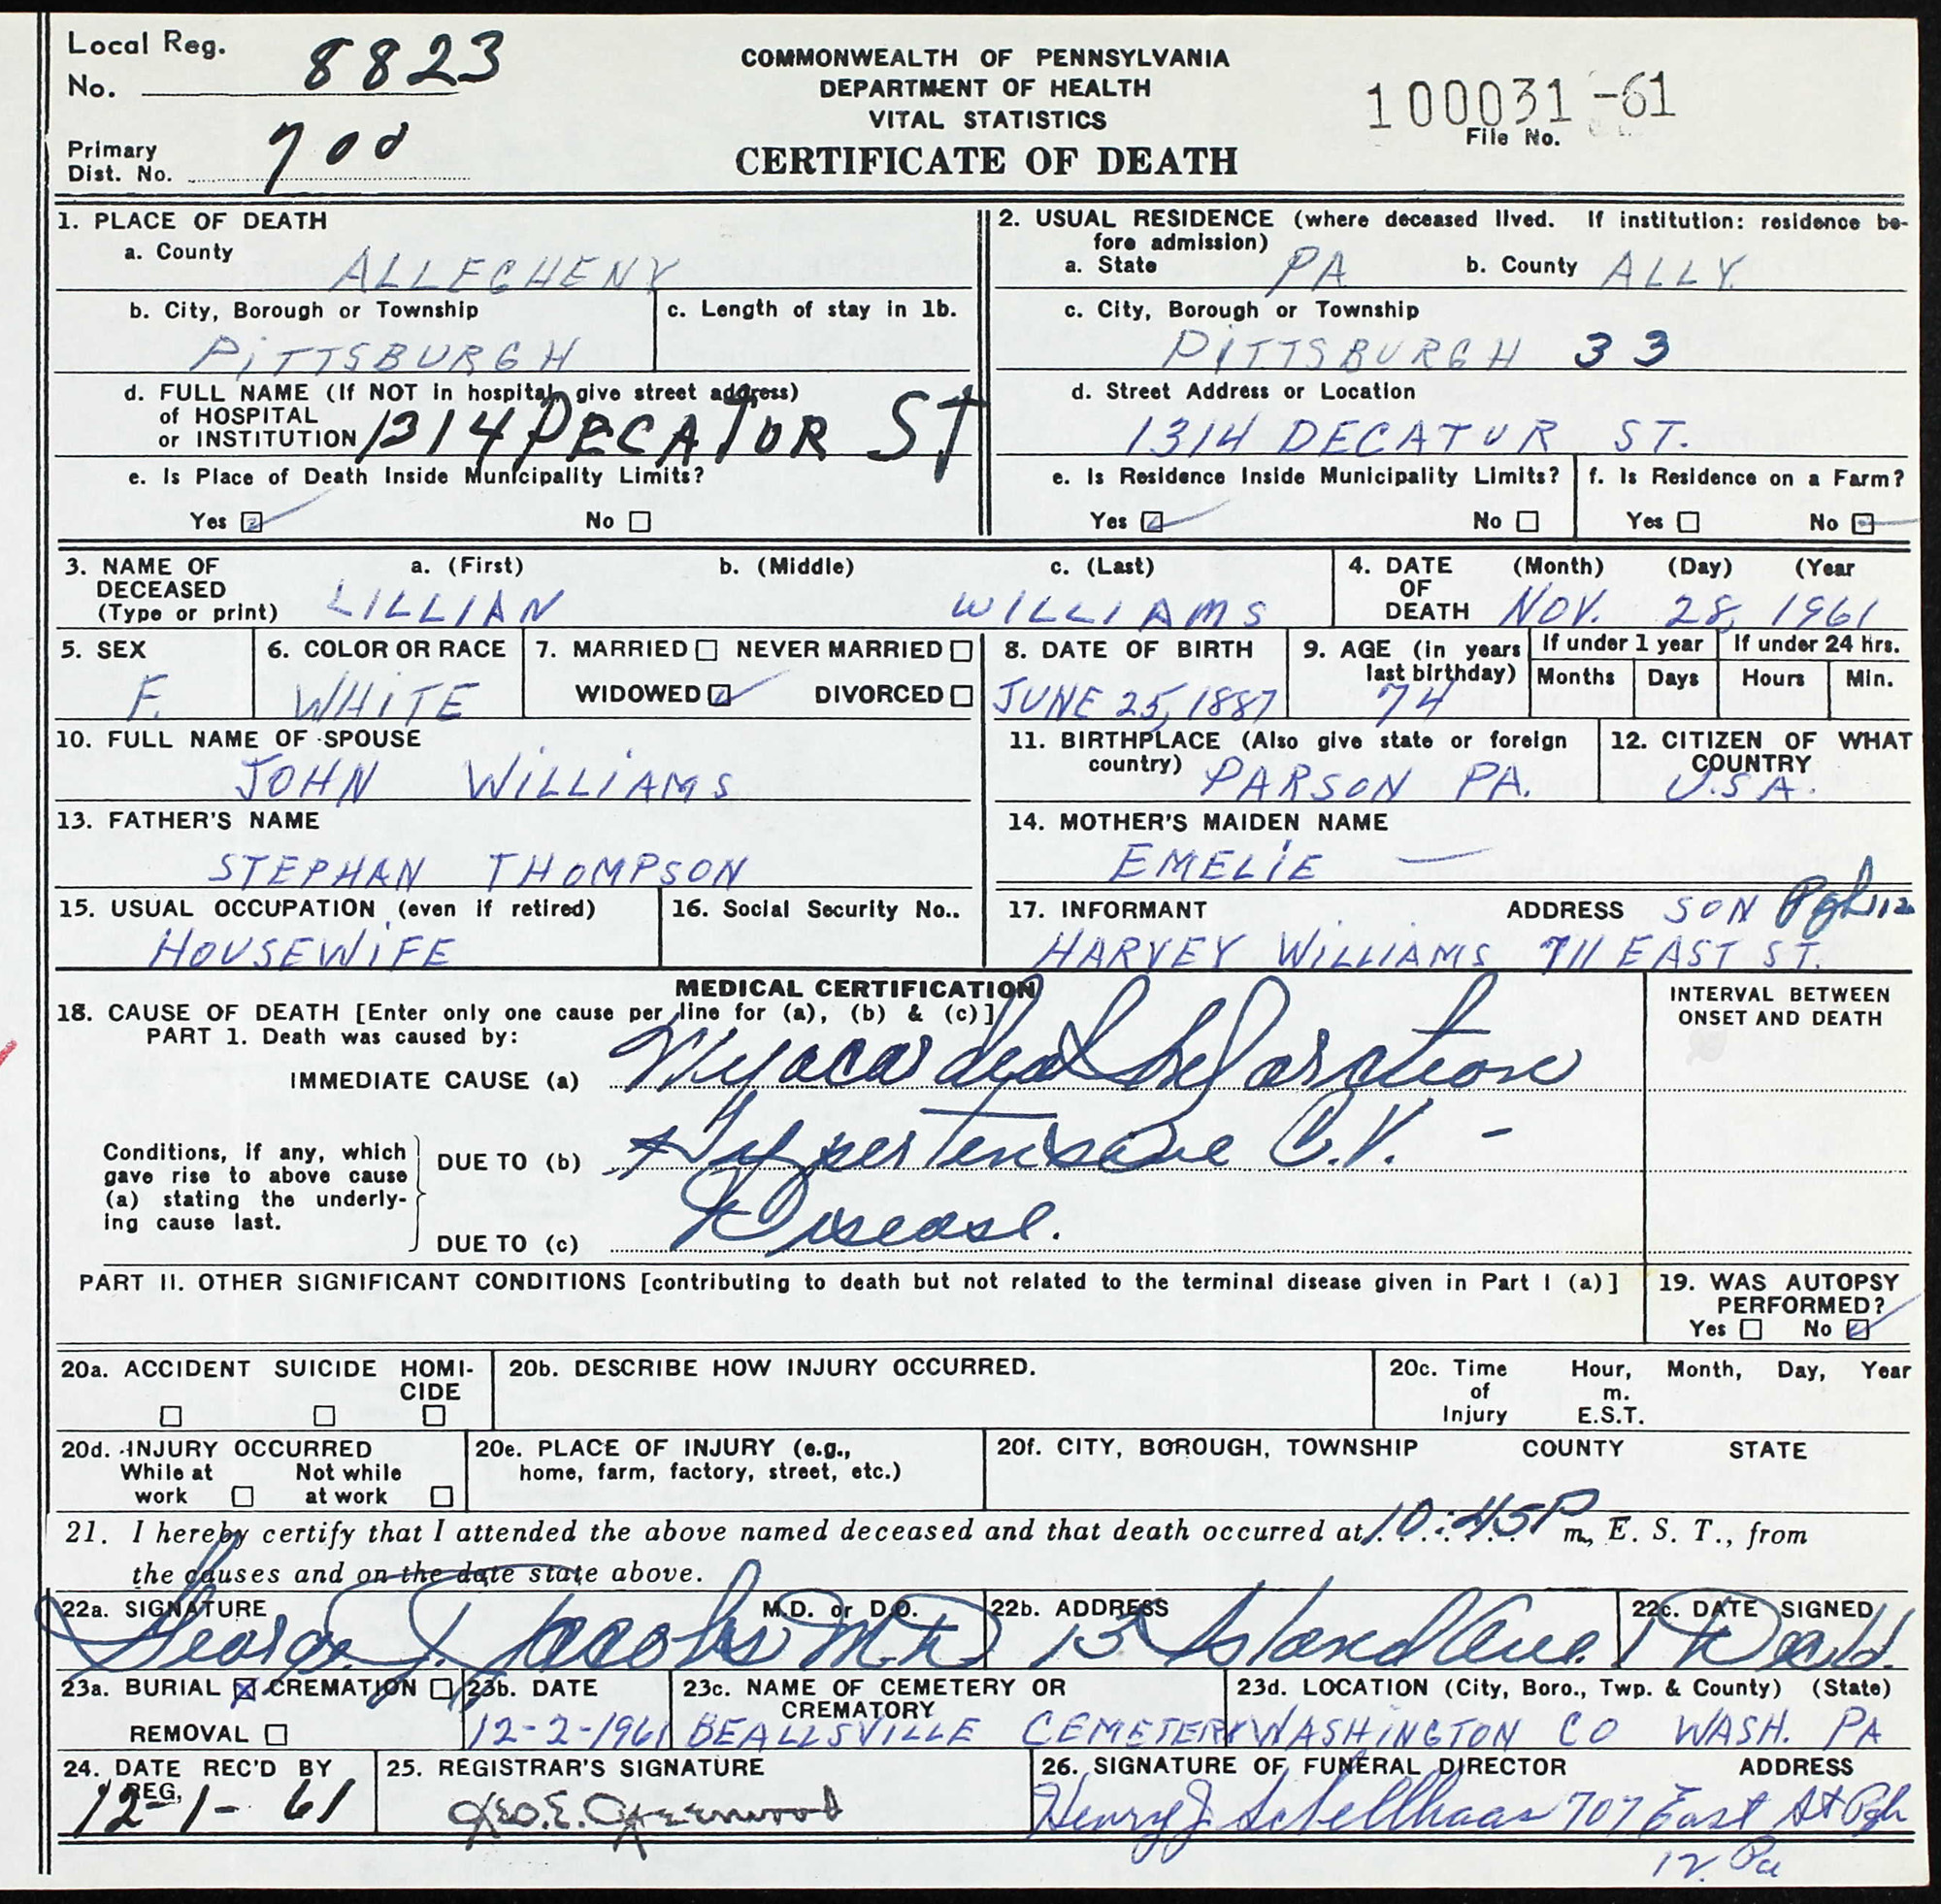 Local Reg. No. 8823
COMMONWEALTH OF PENNSYLVANIA
DEPARTMENT OF HEALTH
VITAL STATISTICS
CERTIFICATE OF DEATH
100031-61
File No.
Primary Dist. No. 700
1. PLACE OF DEATH
a. County ALLEGHENY
b. City, Borough or Township PITTSBURGH
c. Length of stay in 1b.
d. FULL NAME (If NOT in hospital, give street address)
of HOSPITAL
or INSTITUTION 1314 DECATUR ST
e. Is Place of Death Inside Municipality Limits?
Yes ☑ No ☐
2. USUAL RESIDENCE (where deceased lived. If institution: residence be-
fore admission)
a. State PA b. County ALLY.
c. City, Borough or Township
PITTSBURGH 33
d. Street Address or Location
1314 DECATUR ST.
e. Is Residence Inside Municipality Limits? f. Is Residence on a Farm?
Yes ☑ No ☐ Yes ☐ No ☑
3. NAME OF DECEASED (Type or print) a. (First) b. (Middle) c. (Last)
LILLIAN WILLIAMS
4. DATE OF DEATH (Month) (Day) (Year
NOV. 28, 1961
5. SEX F.
6. COLOR OR RACE WHITE
7. MARRIED ☐ NEVER MARRIED ☐
WIDOWED ☑ DIVORCED ☐
8. DATE OF BIRTH JUNE 25, 1887
9. AGE (in years last birthday) 74
If under 1 year If under 24 hrs.
Months Days Hours Min.
10. FULL NAME OF SPOUSE
JOHN WILLIAMS
11. BIRTHPLACE (Also give state or foreign
country) PARSON PA.
12. CITIZEN OF WHAT
COUNTRY
U.S.A.
13. FATHER'S NAME
STEPHAN THOMPSON
14. MOTHER'S MAIDEN NAME
EMELIE —
15. USUAL OCCUPATION (even if retired)
HOUSEWIFE
16. Social Security No..
17. INFORMANT ADDRESS SON Pgh 12
HARVEY WILLIAMS 711 EAST ST.
MEDICAL CERTIFICATION
18. CAUSE OF DEATH [Enter only one cause per line for (a), (b) & (c)]
PART 1. Death was caused by:
IMMEDIATE CAUSE (a) Myocardial Infarction
INTERVAL BETWEEN
ONSET AND DEATH
Conditions, if any, which
gave rise to above cause
(a) stating the underly-
ing cause last.
DUE TO (b) Hypertensive C.V. -
Disease.
DUE TO (c)
PART II. OTHER SIGNIFICANT CONDITIONS [contributing to death but not related to the terminal disease given in Part I (a)]
19. WAS AUTOPSY
PERFORMED?
Yes ☐ No ☑
20a. ACCIDENT SUICIDE HOMI-
CIDE
☐ ☐ ☐
20b. DESCRIBE HOW INJURY OCCURRED.
20c. Time of Injury Hour, Month, Day, Year
m.
E.S.T.
20d. INJURY OCCURRED
While at work ☐ Not while at work ☐
20e. PLACE OF INJURY (e.g.,
home, farm, factory, street, etc.)
20f. CITY, BOROUGH, TOWNSHIP COUNTY STATE
21. I hereby certify that I attended the above named deceased and that death occurred at 10:45P m., E. S. T., from
the causes and on the date state above.
22a. SIGNATURE M.D. or D.O.
George J. Jacobs M.D.
22b. ADDRESS
13 Island Ave.
22c. DATE SIGNED
23a. BURIAL ☒ CREMATION ☐
REMOVAL ☐
23b. DATE
12-2-1961
23c. NAME OF CEMETERY OR
CREMATORY
BEALLSVILLE CEMETERY
23d. LOCATION (City, Boro., Twp. & County) (State)
WASHINGTON CO WASH. PA
24. DATE REC'D BY
REG.
12-1-61
25. REGISTRAR'S SIGNATURE
Geo. E. Greenwood
26. SIGNATURE OF FUNERAL DIRECTOR ADDRESS
Henry J Schellhaas 707 East St Pgh
12. Pa